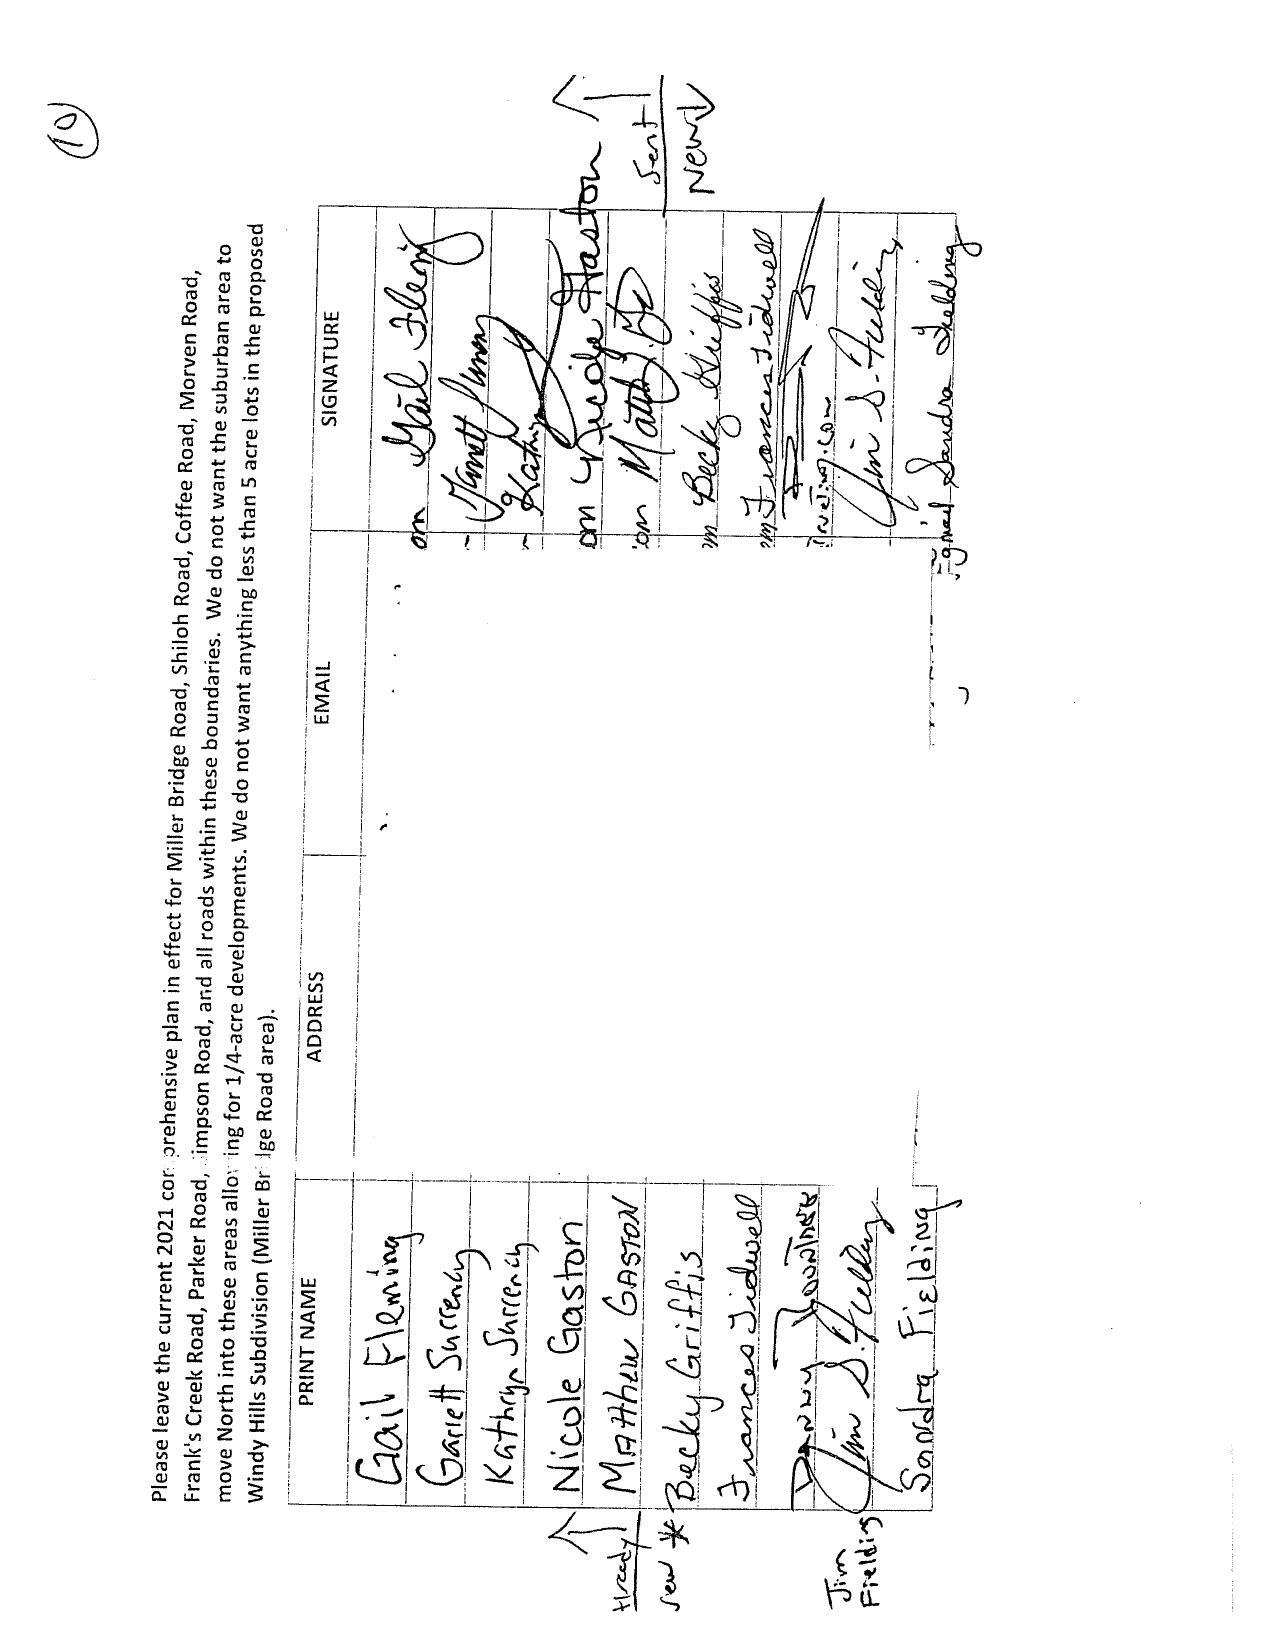 10
Please leave the current 2021 comprehensive plan in effect for Miller Bridge Road, Shiloh Road, Coffee Road, Morven Road,
Frank's Creek Road, Parker Road, impson Road, and all roads within these boundaries. We do not want the suburban area to
move North into these areas allowing for 1/4-acre developments. We do not want anything less than 5 acre lots in the proposed
Windy Hills Subdivision (Miller Bridge Road area).
PRINT NAME ADDRESS EMAIL SIGNATURE
Gail Fleming om Gail Fleming
Garrett Surrency Garrett
Kathryn Surrency Kathryn
Nicole Gaston om Nicole Gaston
Matthew Gaston om Matt
Sent
New * Becky Griffis m Becky Griffis New
Frances Tidwell m Frances Tidwell
Danny
Jim S. Fielding Jim S. Fielding
Jim
Fielding
Sandra Fielding Sandra Fielding